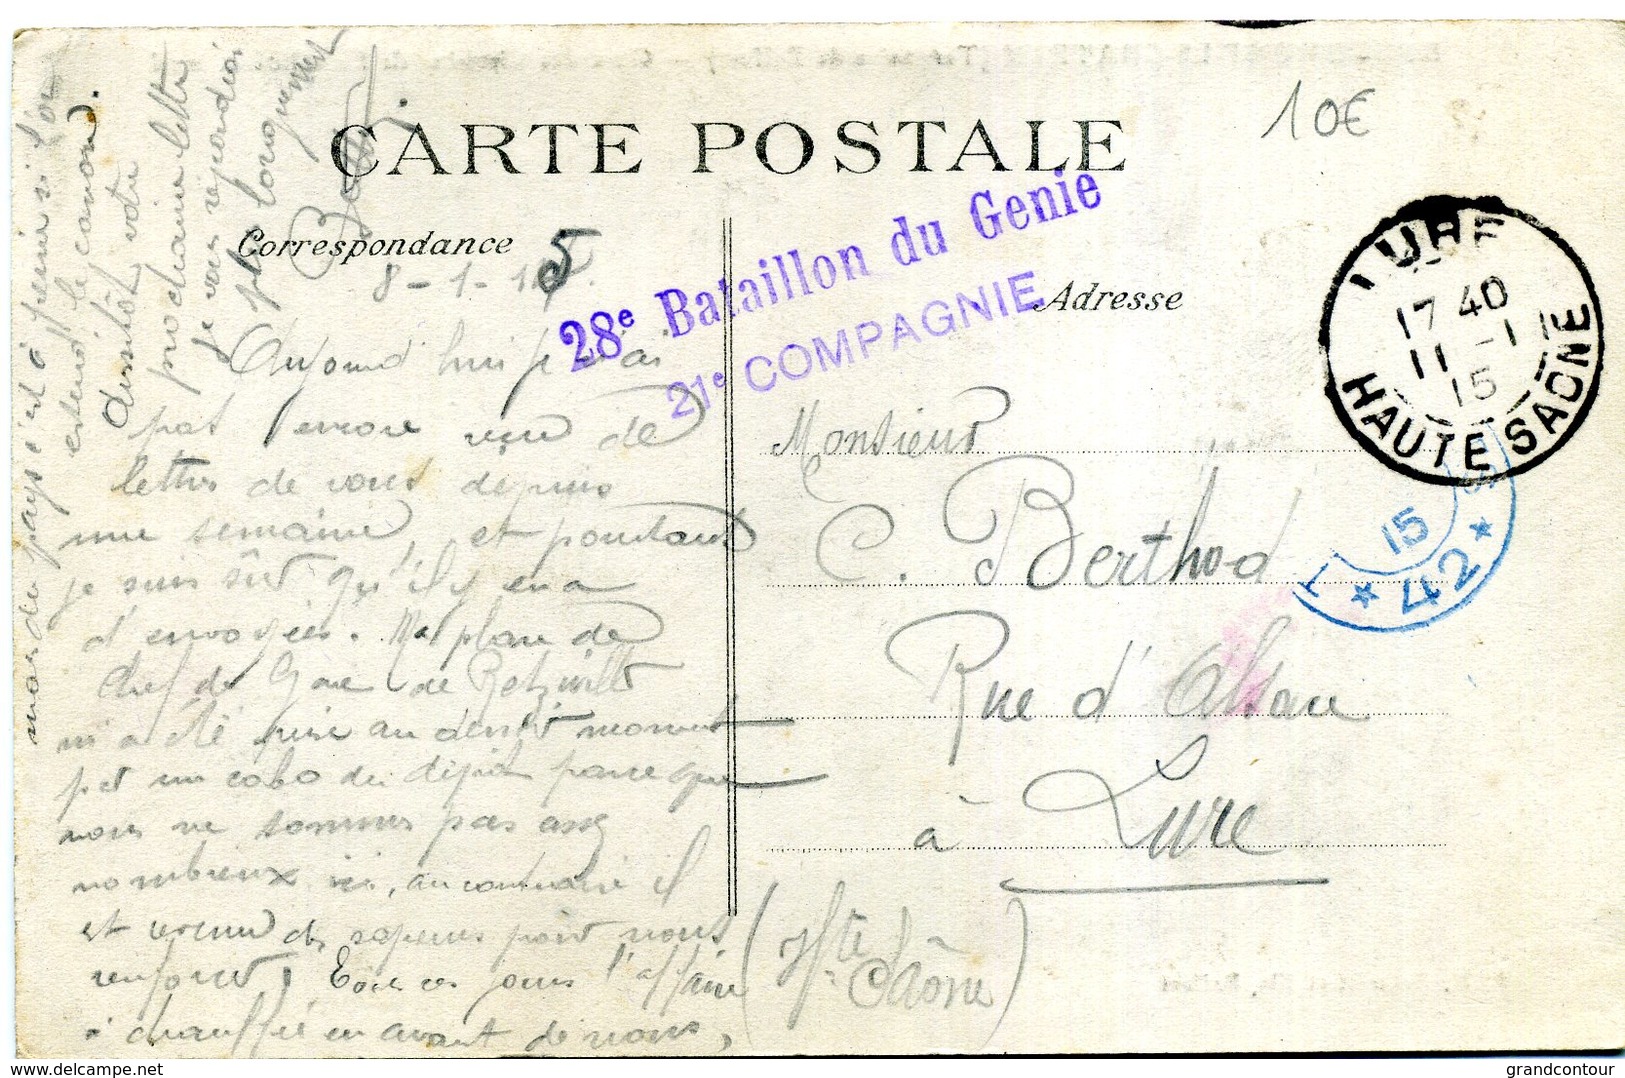 CARTE POSTALE
10€
Correspondance
8-1-15.
28e Bataillon du Genie
21e COMPAGNIE
Adresse
LURE
17 40
11 -1
15
HAUTE SAONE
15
* 42 *
Aujourd'hui je n'ai
pas encore reçu de
lettre de vous depuis
une semaine, et pourtant
je suis sûr qu'il y en a
d'envoyées. Ma place de
Chef de Gare de Retzwiller
m'a été prise au dernier moment
par un cabo du dépôt parce que
nous ne sommes pas assez
nombreux ici, au contraire il
est venu des sapeurs pour nous
renforcer. Tous ces jours l'affaire
a chauffé en avant de nous,
mais du pays c'est à peine si l'on
entend le canon.
Aussitôt votre
prochaine lettre
je vous répondrai
plus longuement
Monsieur
C. Berthod
Rue d'Alsace
à Lure
(Hte Saône)
delcampe.net
grandcontour